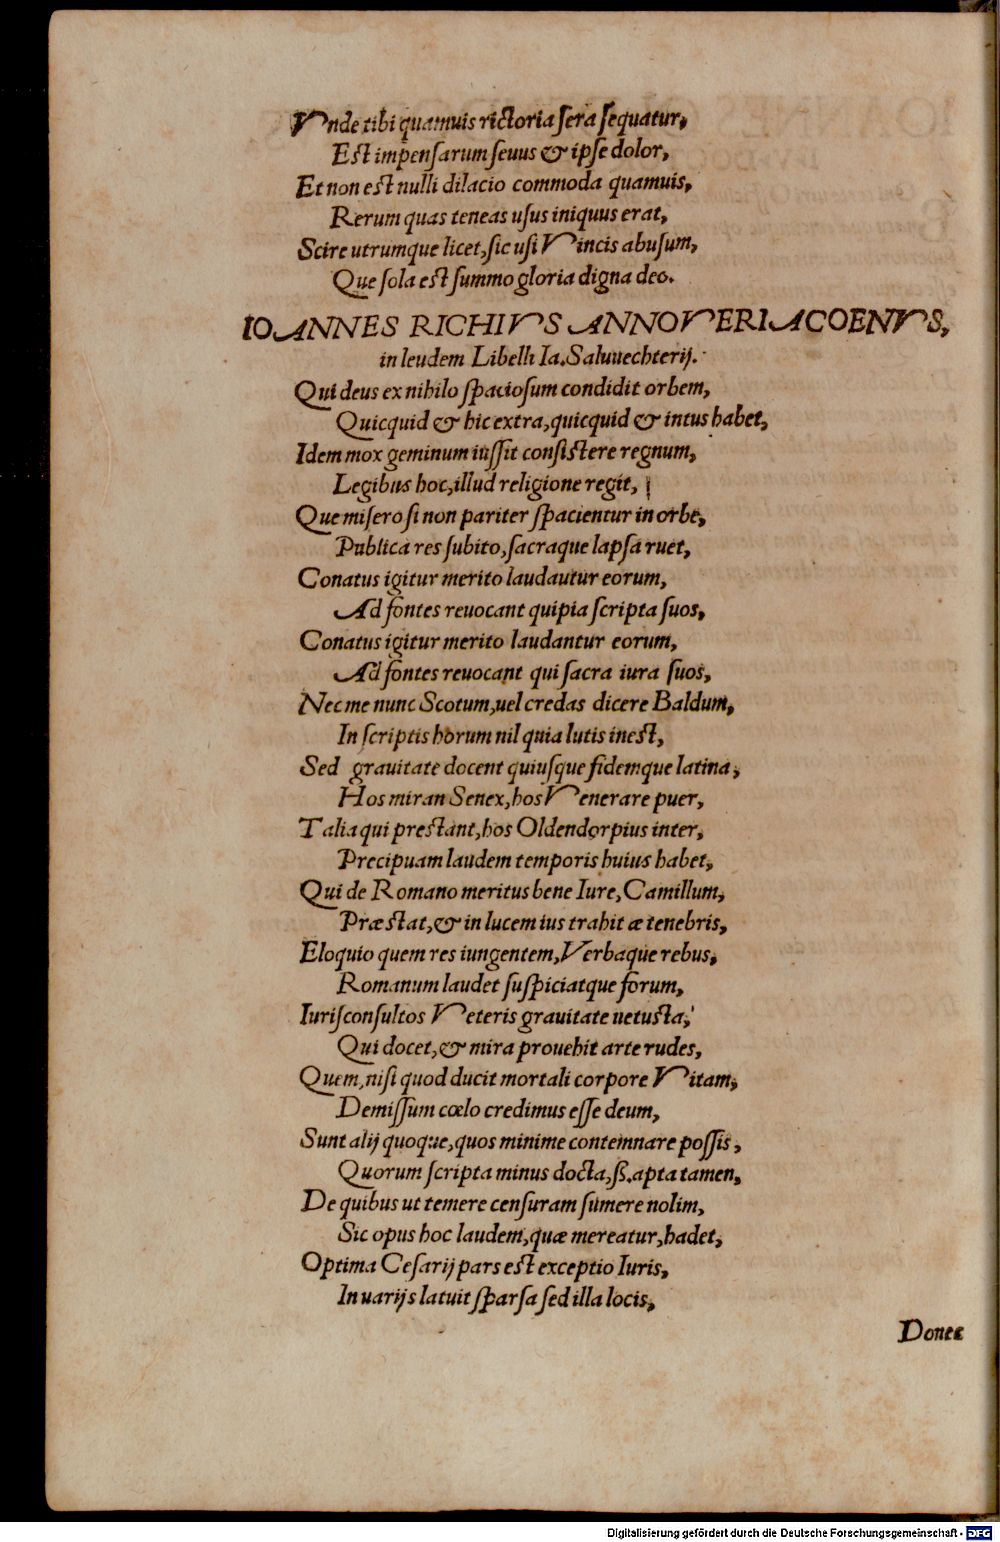 Vnde tibi quamuis rictoria sera sequatur,
Est impensarum seuus & ipse dolor,
Et non est nulli dilacio commoda quamuis,
Rerum quas teneas usus iniquus erat,
Scire utrumque licet, sic usi Vincis abusum,
Que sola est summo gloria digna deo.
IOANNES RICHIVS ANNOVERIACOENVS,
in leudem Libelli Ia. Saluuechterij.
Qui deus ex nihilo spaciosum condidit orbem,
Quicquid & hic extra, quicquid & intus habet,
Idem mox geminum iussit consistere regnum,
Legibus hoc, illud religione regit,
Que misero si non pariter spacientur in orbe,
Publica res subito, sacraque lapsa ruet,
Conatus igitur merito laudautur eorum,
Ad fontes reuocant qui pia scripta suos,
Conatus igitur merito laudantur eorum,
Ad fontes reuocant qui sacra iura suos,
Nec me nunc Scotum, uel credas dicere Baldum,
In scriptis horum nil quia lutis inest,
Sed grauitate docent quiusque fidemque latina,
Hos miran Senex, hos Venerare puer,
Talia qui prestant, hos Oldendorpius inter,
Precipuam laudem temporis huius habet,
Qui de Romano meritus bene Iure, Camillum,
Præstat, & in lucem ius trahit æ tenebris,
Eloquio quem res iungentem, Verbaque rebus,
Romanum laudet suspiciatque forum,
Iurisconsultos Veteris grauitate uetusta,
Qui docet, & mira prouehit arte rudes,
Quem, nisi quod ducit mortali corpore Vitam,
Demissum cœlo credimus esse deum,
Sunt alij quoque, quos minime contemnare possis,
Quorum scripta minus docta, ß. apta tamen,
De quibus ut temere censuram sumere nolim,
Sic opus hoc laudem, quæ mereatur, hadet,
Optima Cesarij pars est exceptio Iuris,
In uarijs latuit sparsa sed illa locis,
Donec
Digitalisierung gefördert durch die Deutsche Forschungsgemeinschaft - DFG